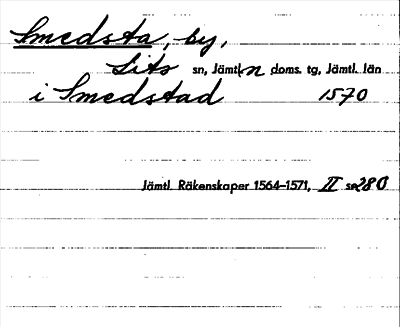 Smedsta, by,
Lits sn, Jämtl n doms. tg, Jämtl. län
i Smedstad 1570
Jämtl. Räkenskaper 1564–1571, II s 280